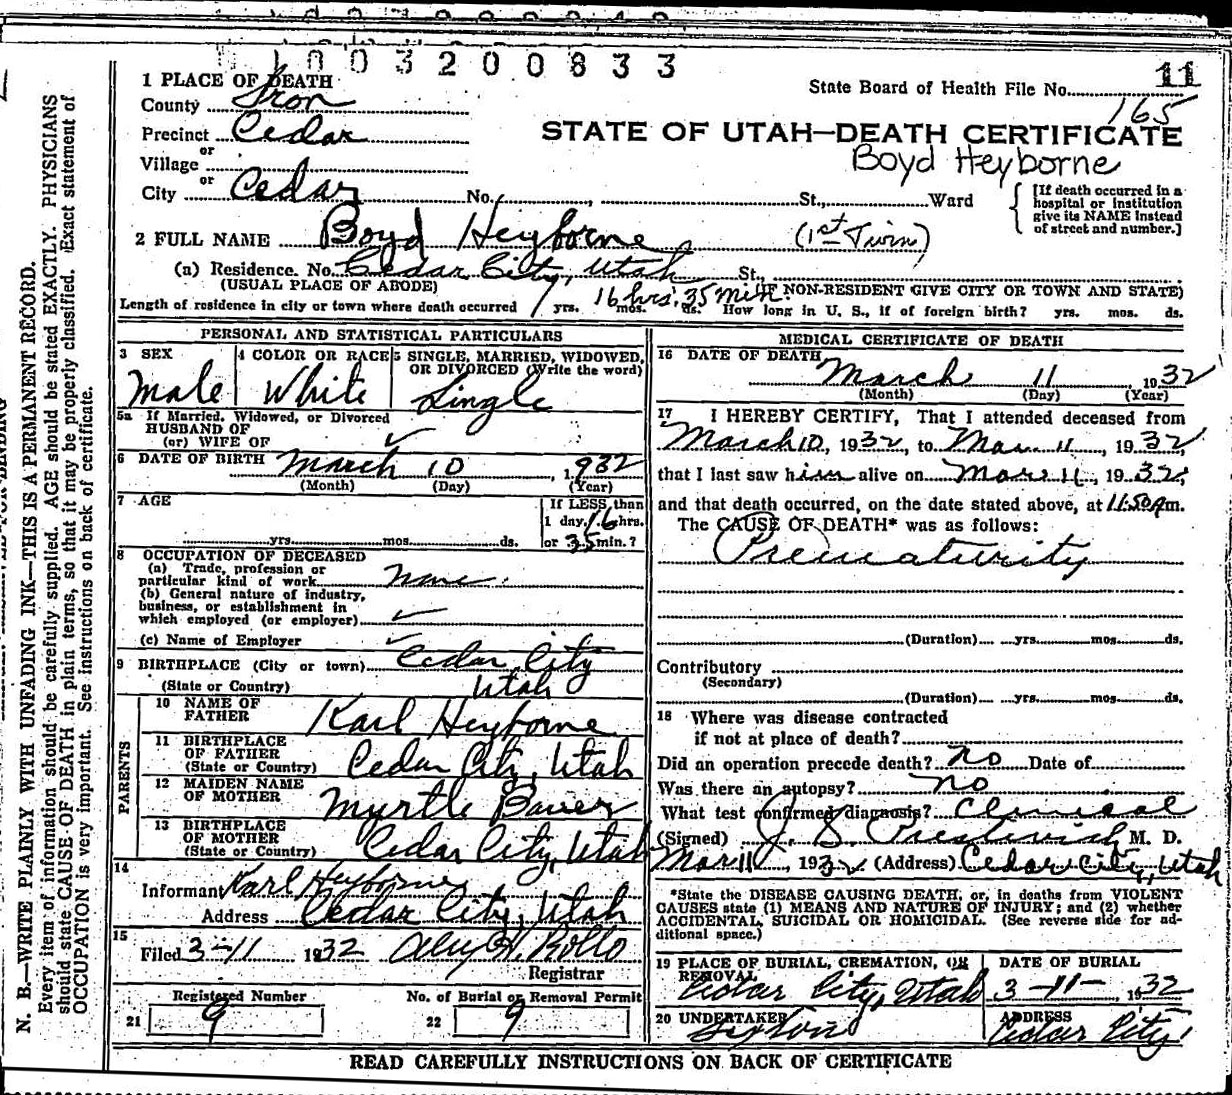 1003200833
11
1 PLACE OF DEATH
State Board of Health File No.
County Iron
165
Precinct Cedar
STATE OF UTAH—DEATH CERTIFICATE
or
Boyd Heyborne
Village
or
City Cedar No. , St., Ward
{ [If death occurred in a
hospital or institution
give its NAME instead
of street and number.]
2 FULL NAME Boyd Heyborne (1st Twin)
(a) Residence. No. Cedar City, Utah St.,
(USUAL PLACE OF ABODE) (IF NON-RESIDENT GIVE CITY OR TOWN AND STATE)
16 hrs. 35 min.
Length of residence in city or town where death occurred yrs. mos. ds. How long in U. S., if of foreign birth? yrs. mos. ds.
PERSONAL AND STATISTICAL PARTICULARS
3 SEX 4 COLOR OR RACE 5 SINGLE, MARRIED, WIDOWED,
OR DIVORCED (Write the word)
Male White Single
5a If Married, Widowed, or Divorced
HUSBAND OF
(or) WIFE OF ✓
6 DATE OF BIRTH March 10 1932
(Month) (Day) (Year)
7 AGE If LESS than
1 day, 16 hrs.
yrs. mos. ds. or 35 min.?
8 OCCUPATION OF DECEASED
(a) Trade, profession or
particular kind of work None
(b) General nature of industry,
business, or establishment in
which employed (or employer) ✓
(c) Name of Employer ✓
9 BIRTHPLACE (City or town) Cedar City
(State or Country) Utah
PARENTS
10 NAME OF
FATHER Karl Heyborne
11 BIRTHPLACE
OF FATHER
(State or Country) Cedar City, Utah
12 MAIDEN NAME
OF MOTHER Myrtle Bauer
13 BIRTHPLACE
OF MOTHER
(State or Country) Cedar City, Utah
14
Informant Karl Heyborne
Address Cedar City, Utah
15
Filed 3-11 1932 H. Rollo
Registrar
Registered Number No. of Burial or Removal Permit
21 9 22 9
MEDICAL CERTIFICATE OF DEATH
16 DATE OF DEATH
March 11, 1932
(Month) (Day) (Year)
17 I HEREBY CERTIFY, That I attended deceased from
March 10, 1932, to Mar 11, 1932,
that I last saw him alive on Mar 11, 1932,
and that death occurred, on the date stated above, at 11:50 A m.
The CAUSE OF DEATH* was as follows:
Prematurity
(Duration) yrs. mos. ds.
Contributory
(Secondary)
(Duration) yrs. mos. ds.
18 Where was disease contracted
if not at place of death?
Did an operation precede death? no Date of
Was there an autopsy? no
What test confirmed diagnosis? Clinical
(Signed) J. S. Prestwich M. D.
Mar 11, 1932 (Address) Cedar City, Utah
*State the DISEASE CAUSING DEATH, or, in deaths from VIOLENT
CAUSES state (1) MEANS AND NATURE OF INJURY; and (2) whether
ACCIDENTAL, SUICIDAL OR HOMICIDAL. (See reverse side for ad-
ditional space.)
19 PLACE OF BURIAL, CREMATION, OR
REMOVAL
Cedar City, Utah
DATE OF BURIAL
3-11- 1932
20 UNDERTAKER
Sexton
ADDRESS
Cedar City
READ CAREFULLY INSTRUCTIONS ON BACK OF CERTIFICATE
N. B.—WRITE PLAINLY WITH UNFADING INK—THIS IS A PERMANENT RECORD.
Every item of information should be carefully supplied. AGE should be stated EXACTLY. PHYSICIANS
should state CAUSE OF DEATH in plain terms, so that it may be properly classified. Exact statement of
OCCUPATION is very important. See instructions on back of certificate.